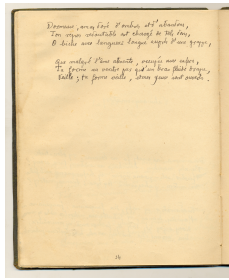 Dormeuse, amas doré d'ombres et d'abandons,
Ton repos redoutable est chargé de tels dons,
O biche avec langueur longue auprès d'une grappe,
Que malgré l'âme absente, occupée aux enfers,
Ta forme au ventre pur qu'un bras fluide drape,
Veille ; ta forme veille, et mes yeux sont ouverts.